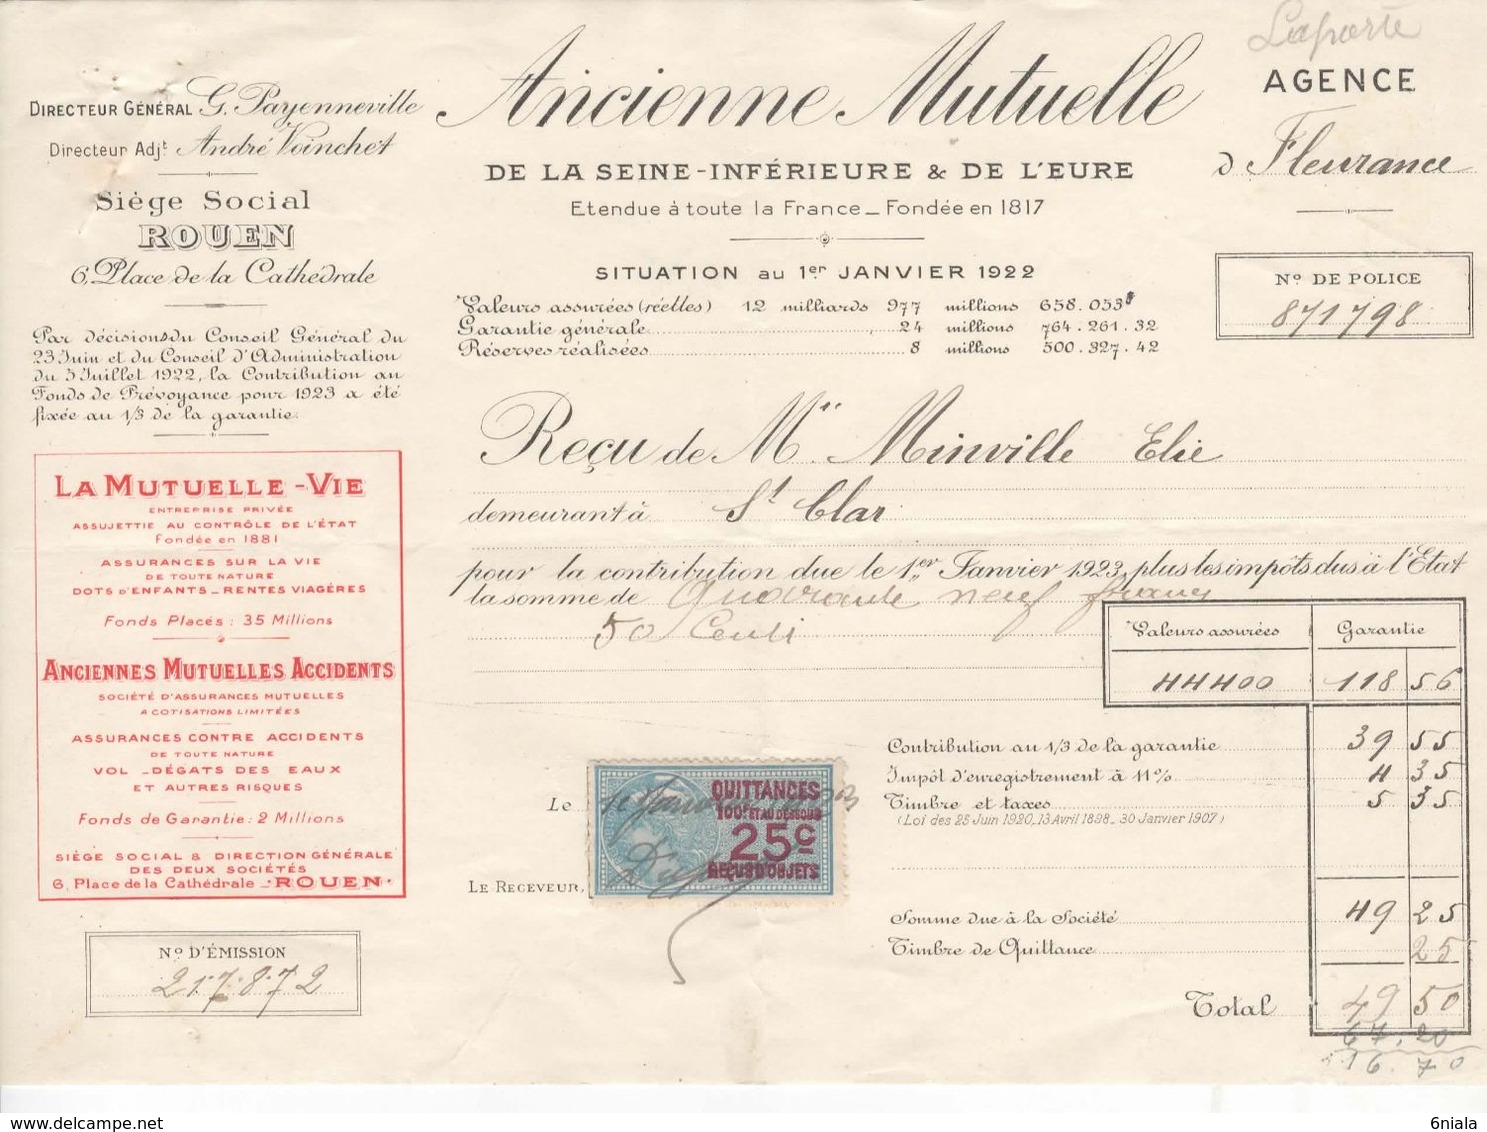 Laporte
AGENCE
d Fleurance
DIRECTEUR GÉNÉRAL G. Payenneville
Directeur Adjt André Voinchet
Siège Social
ROUEN
6, Place de la Cathédrale
Ancienne Mutuelle
DE LA SEINE-INFÉRIEURE & DE L'EURE
Etendue à toute la France _ Fondée en 1817
SITUATION au 1er JANVIER 1922
Valeurs assurées (réelles) 12 milliards 977 millions 658.053
Garantie générale 24 millions 764.261.32
Réserves réalisées 8 millions 500.327.42
No DE POLICE
871798
Par décisions du Conseil Général du
23 Juin et du Conseil d'Administration
du 3 Juillet 1922, la Contribution au
Fonds de Prévoyance pour 1923 a été
fixée au 1/3 de la garantie.
LA MUTUELLE - VIE
ENTREPRISE PRIVÉE
ASSUJETTIE AU CONTRÔLE DE L'ÉTAT
Fondée en 1881
ASSURANCES SUR LA VIE
DE TOUTE NATURE
DOTS D'ENFANTS _ RENTES VIAGÈRES
Fonds Placés : 35 Millions
ANCIENNES MUTUELLES ACCIDENTS
SOCIÉTÉ D'ASSURANCES MUTUELLES
A COTISATIONS LIMITÉES
ASSURANCES CONTRE ACCIDENTS
DE TOUTE NATURE
VOL _ DÉGATS DES EAUX
ET AUTRES RISQUES
Fonds de Garantie : 2 Millions
SIÈGE SOCIAL & DIRECTION GÉNÉRALE
DES DEUX SOCIÉTÉS
6, Place de la Cathédrale _ ROUEN
No D'ÉMISSION
217.872
Reçu de M Minville Elie
demeurant à St Clar
pour la contribution due le 1er Janvier 1923, plus les impôts dus à l'Etat
la somme de Quarante neuf francs
50 Centi
Valeurs assurées Garantie
44400 118 56
Contribution au 1/3 de la garantie 39 55
Impôt d'enregistrement à 11% 4 35
Timbre et taxes 5 35
(Loi des 25 Juin 1920, 13 Avril 1898 _ 30 Janvier 1907)
Somme due à la Société 49 25
Timbre de Quittance 25
Total 49 50
67.20
16.70
Le
QUITTANCES
100F ET AU DESSOUS
25c
REÇUS D'OBJETS
LE RECEVEUR,
6niala